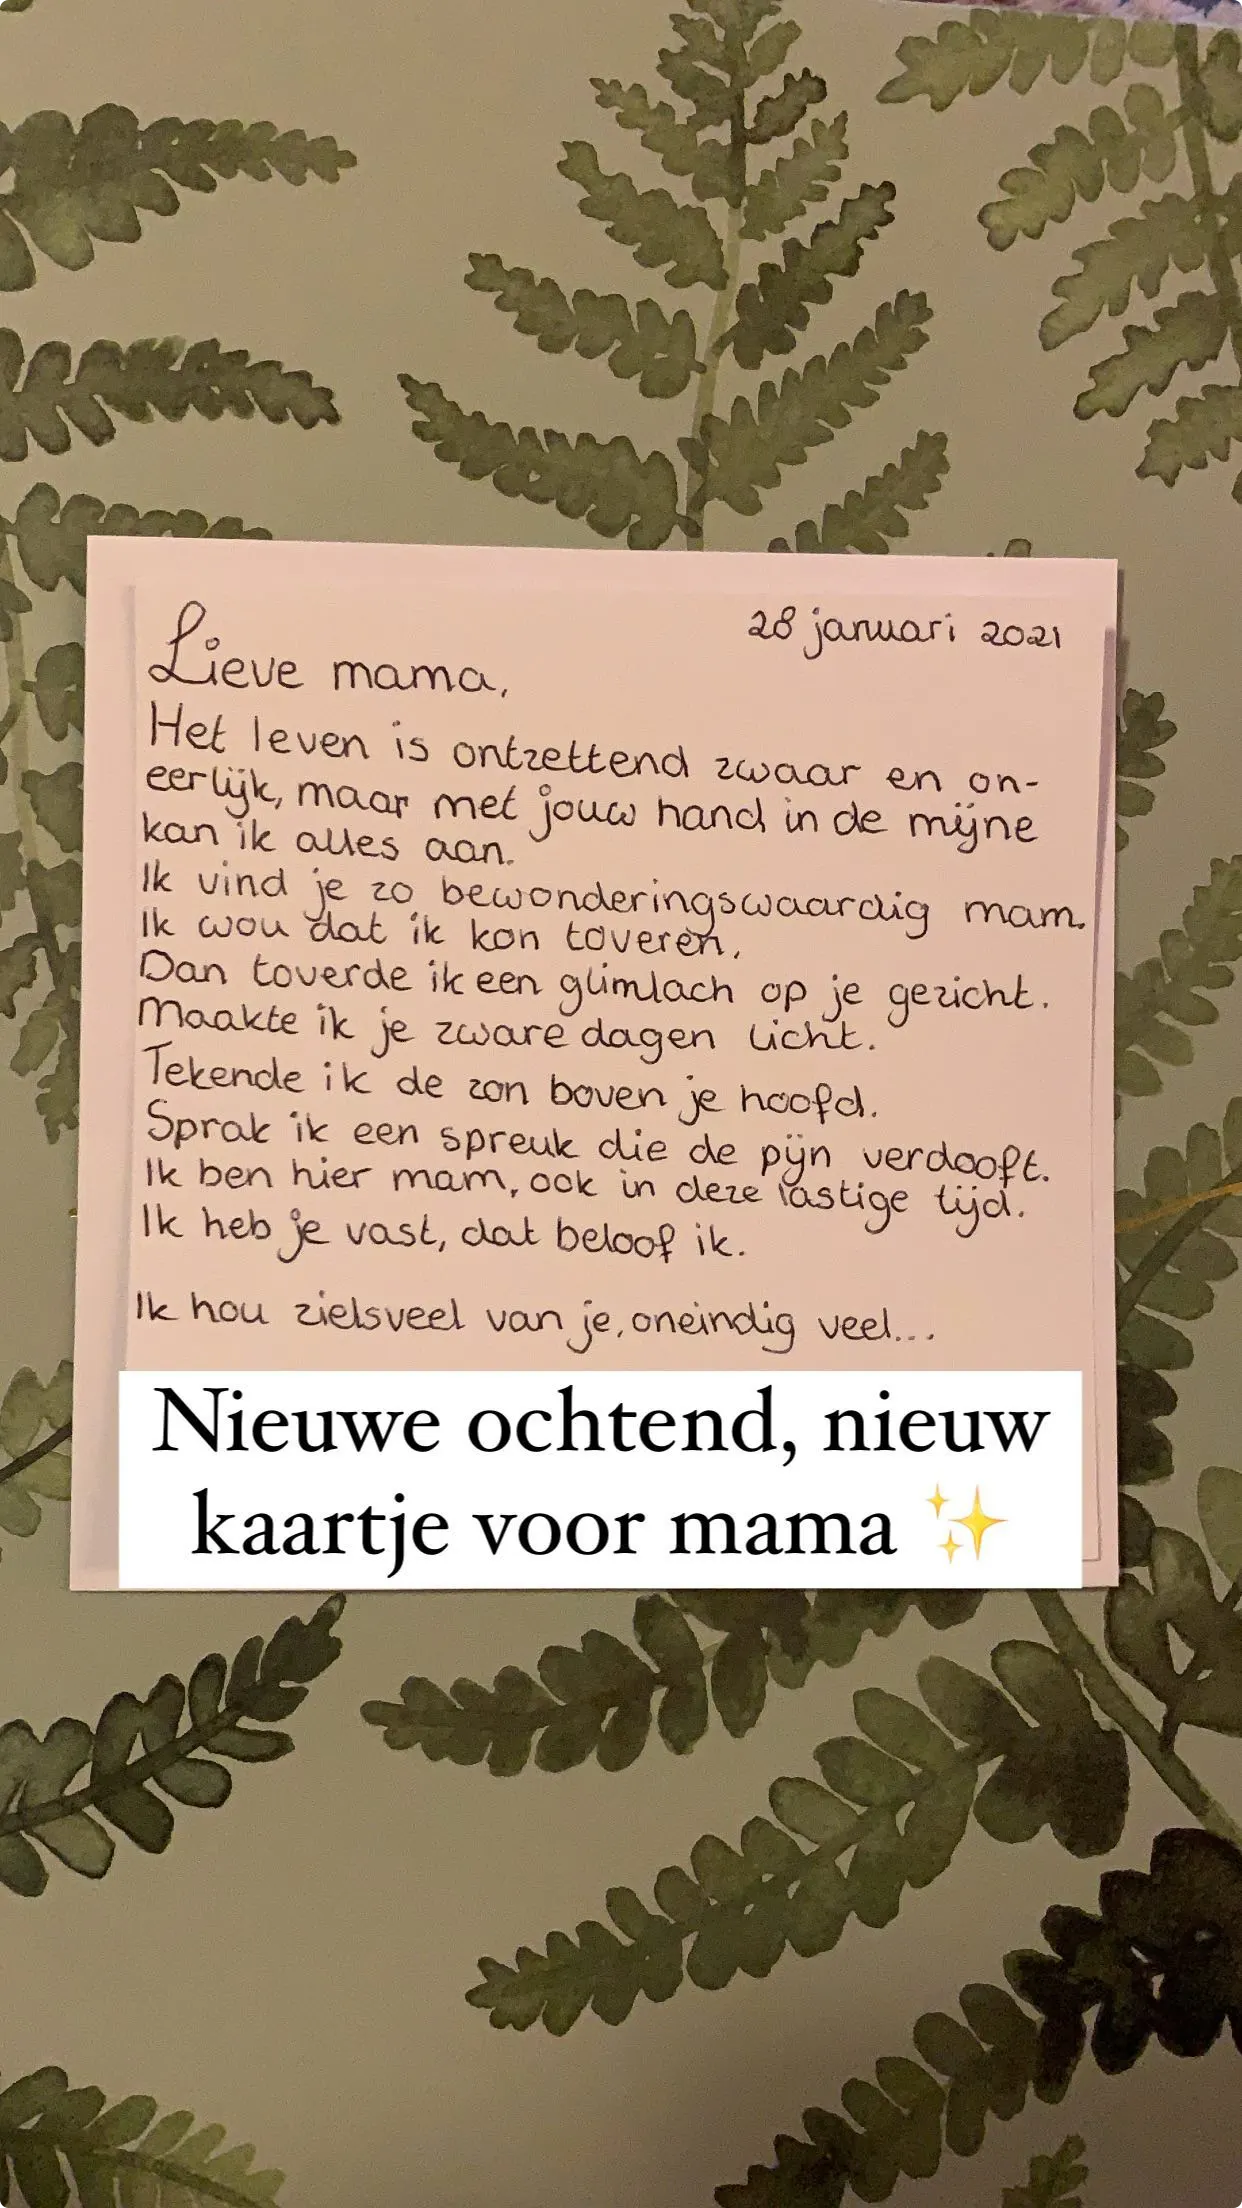 28 januari 2021
Lieve mama,
Het leven is ontzettend zwaar en on-
eerlijk, maar met jouw hand in de mijne
kan ik alles aan.
Ik vind je zo bewonderingswaardig mam.
Ik wou dat ik kon toveren.
Dan toverde ik een glimlach op je gezicht.
Maakte ik je zware dagen licht.
Tekende ik de zon boven je hoofd.
Sprak ik een spreuk die de pijn verdooft.
Ik ben hier mam, ook in deze lastige tijd.
Ik heb je vast, dat beloof ik.
Ik hou zielsveel van je, oneindig veel...
Nieuwe ochtend, nieuw
kaartje voor mama ✨